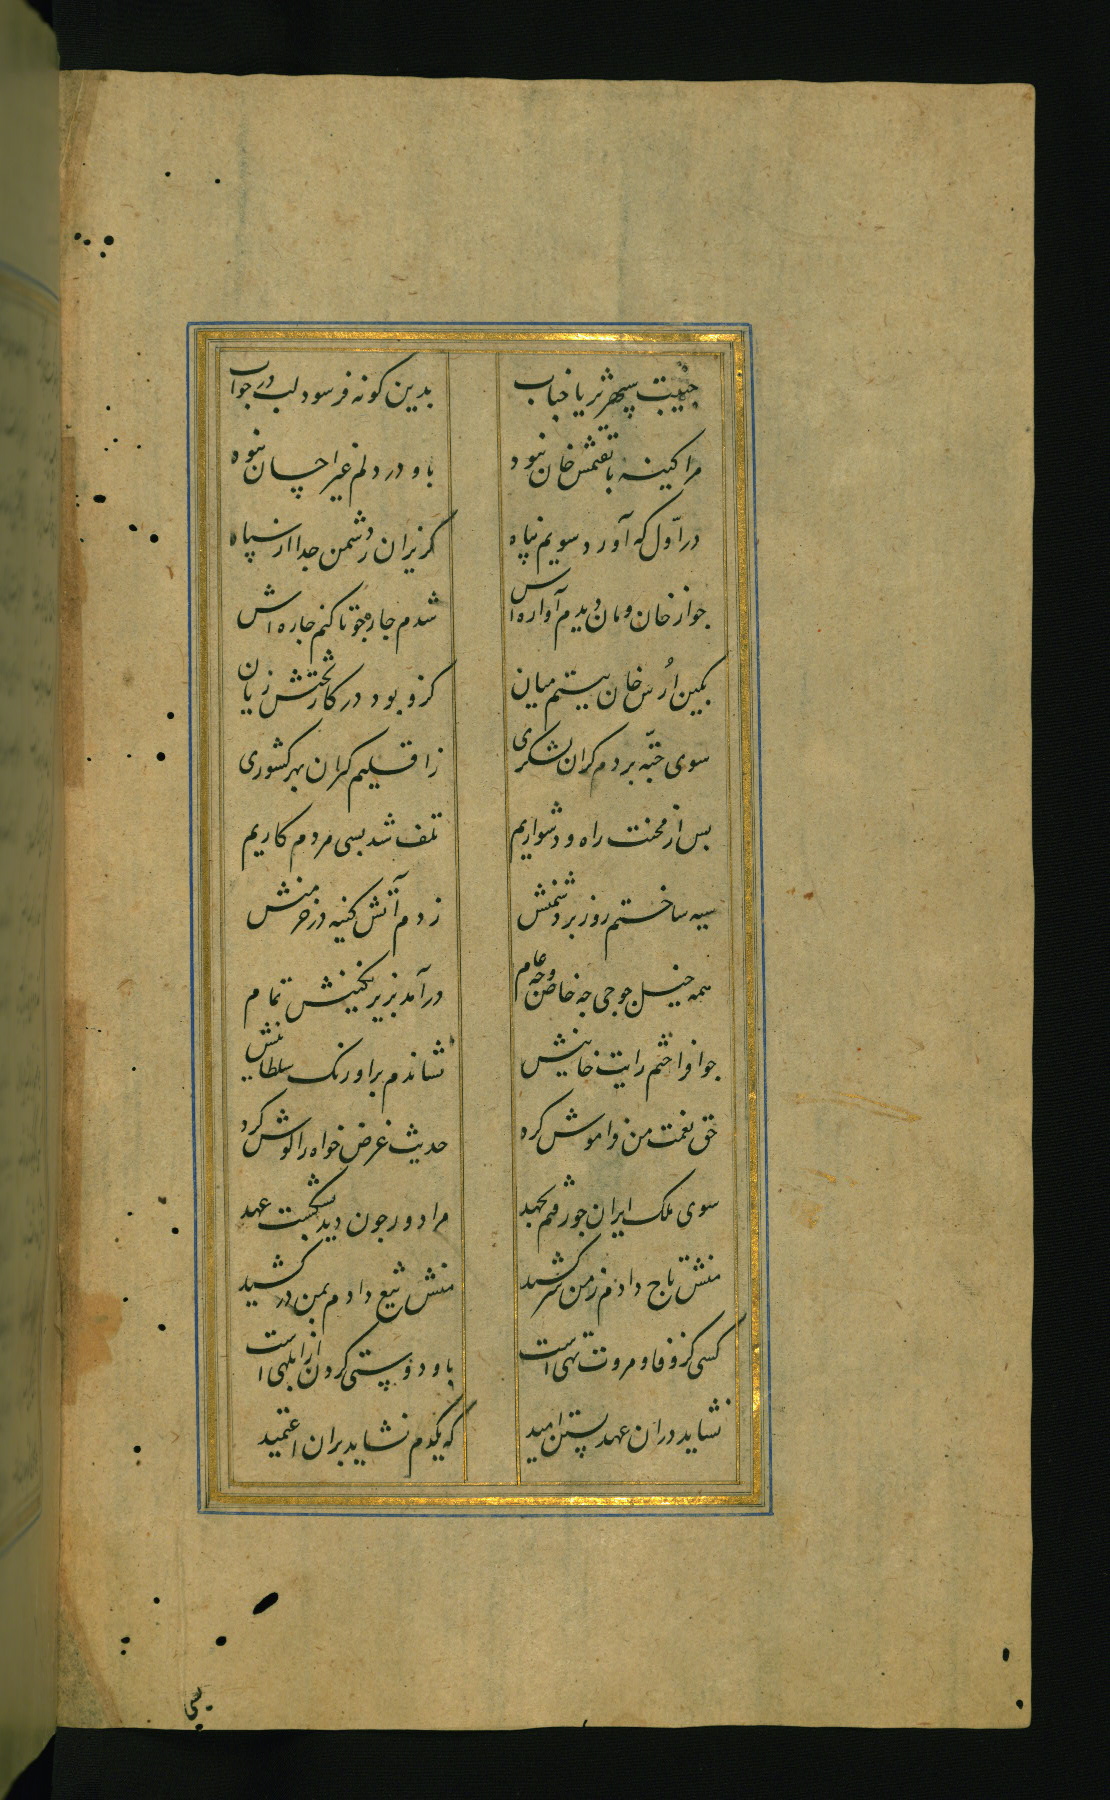 جنیبت سپهر ثریا خباب بدین کونه فرسود لب در جواب
مرا کینه با تقتمش خان نبود باو در دلم غیر احسان نبوه
در اّول که آورد سویم پناه کریزان ز دشمن جدا از سپاه
جو از خان و مان دیدم آواره اش شدم جاره جو تا کنم جاره اش
بکین اُرس خان ببستم میان کزو بود در کار تختش زیان
سوی جتّه بردم کران لشکری ز اقلیم کیران بهر کشوری
بس از محنت راه و دشواریم تلف شد بسی مردم کاریم
سیه ساختم روز بر دشمنش زدم آتش کینه در خرمنش
همه خیل جوجی جه خاص و جه عام درآمد بزیر نکینش تمام
جو افراختم رایت خانیش نشاندم بر اورنک سلطانیش
حق نعمت من فراموش کرد حدیث غرض خواه را کوش کرد
سوی ملک ایران جو رفتم بجهد مرا دور جون دید بشکست عهد
منش تاج دادم ز من سر کشید منش تیغ دادم بمن در کشید
کسی کز وفا و مروت تهی است باو دوستی کردن از ابلهی است
نشاید دران عهد بستن امید که یکدم نشاید بران اعتمید